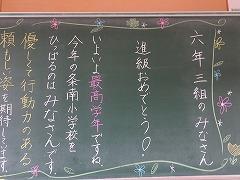 六年三組のみなさん
進級おめでとう○
いよいよ最高学年ですね。
今年の条南小学校を
ひっぱるのはみなさんです。
優しくて行動力のある
頼もしい姿を期待しています。